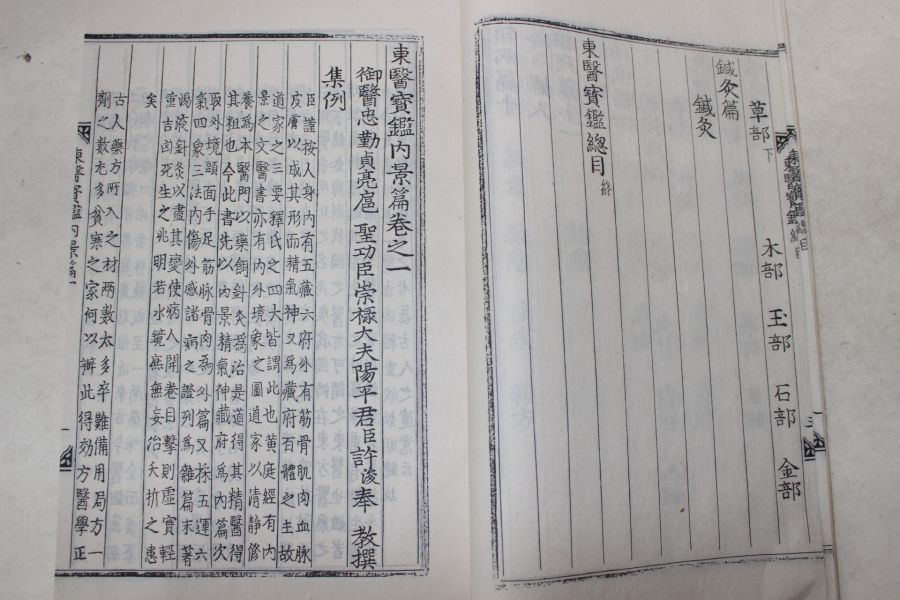 草部下 木部 玉部 石部 金部
鍼灸篇
鍼灸
東醫寶鑑總目終
東醫寶鑑內景篇卷之一
御醫忠勤貞亮扈 聖功臣崇祿大夫陽平君臣許浚奉 教撰
集例
臣謹按人身內有五藏六府外有筋骨肌肉血脉
皮膚以成其形而精氣神又爲藏府百體之主故
道家之三要釋氏之四大皆謂此也黃庭經有內
景之文醫書亦有內外境象之圖道家以清靜修
養爲本醫門以藥餌針灸爲治是道得其精醫得
其粗也今此書先以內景精氣神藏府爲內篇次
取外境頭面手足筋脉骨肉爲外篇又採五運六
氣四象三法內傷外感諸病之證列爲雜篇末著
湯液針灸以盡其變使病人開卷目擊則虛實輕
重吉凶死生之兆明若水鏡庶無妄治夭折之患
矣
古人藥方所入之材兩數太多卒難備用局方一
劑之數尤多貧寒之家何以辨此得効方醫學正
東醫寶鑑內景篇一
一